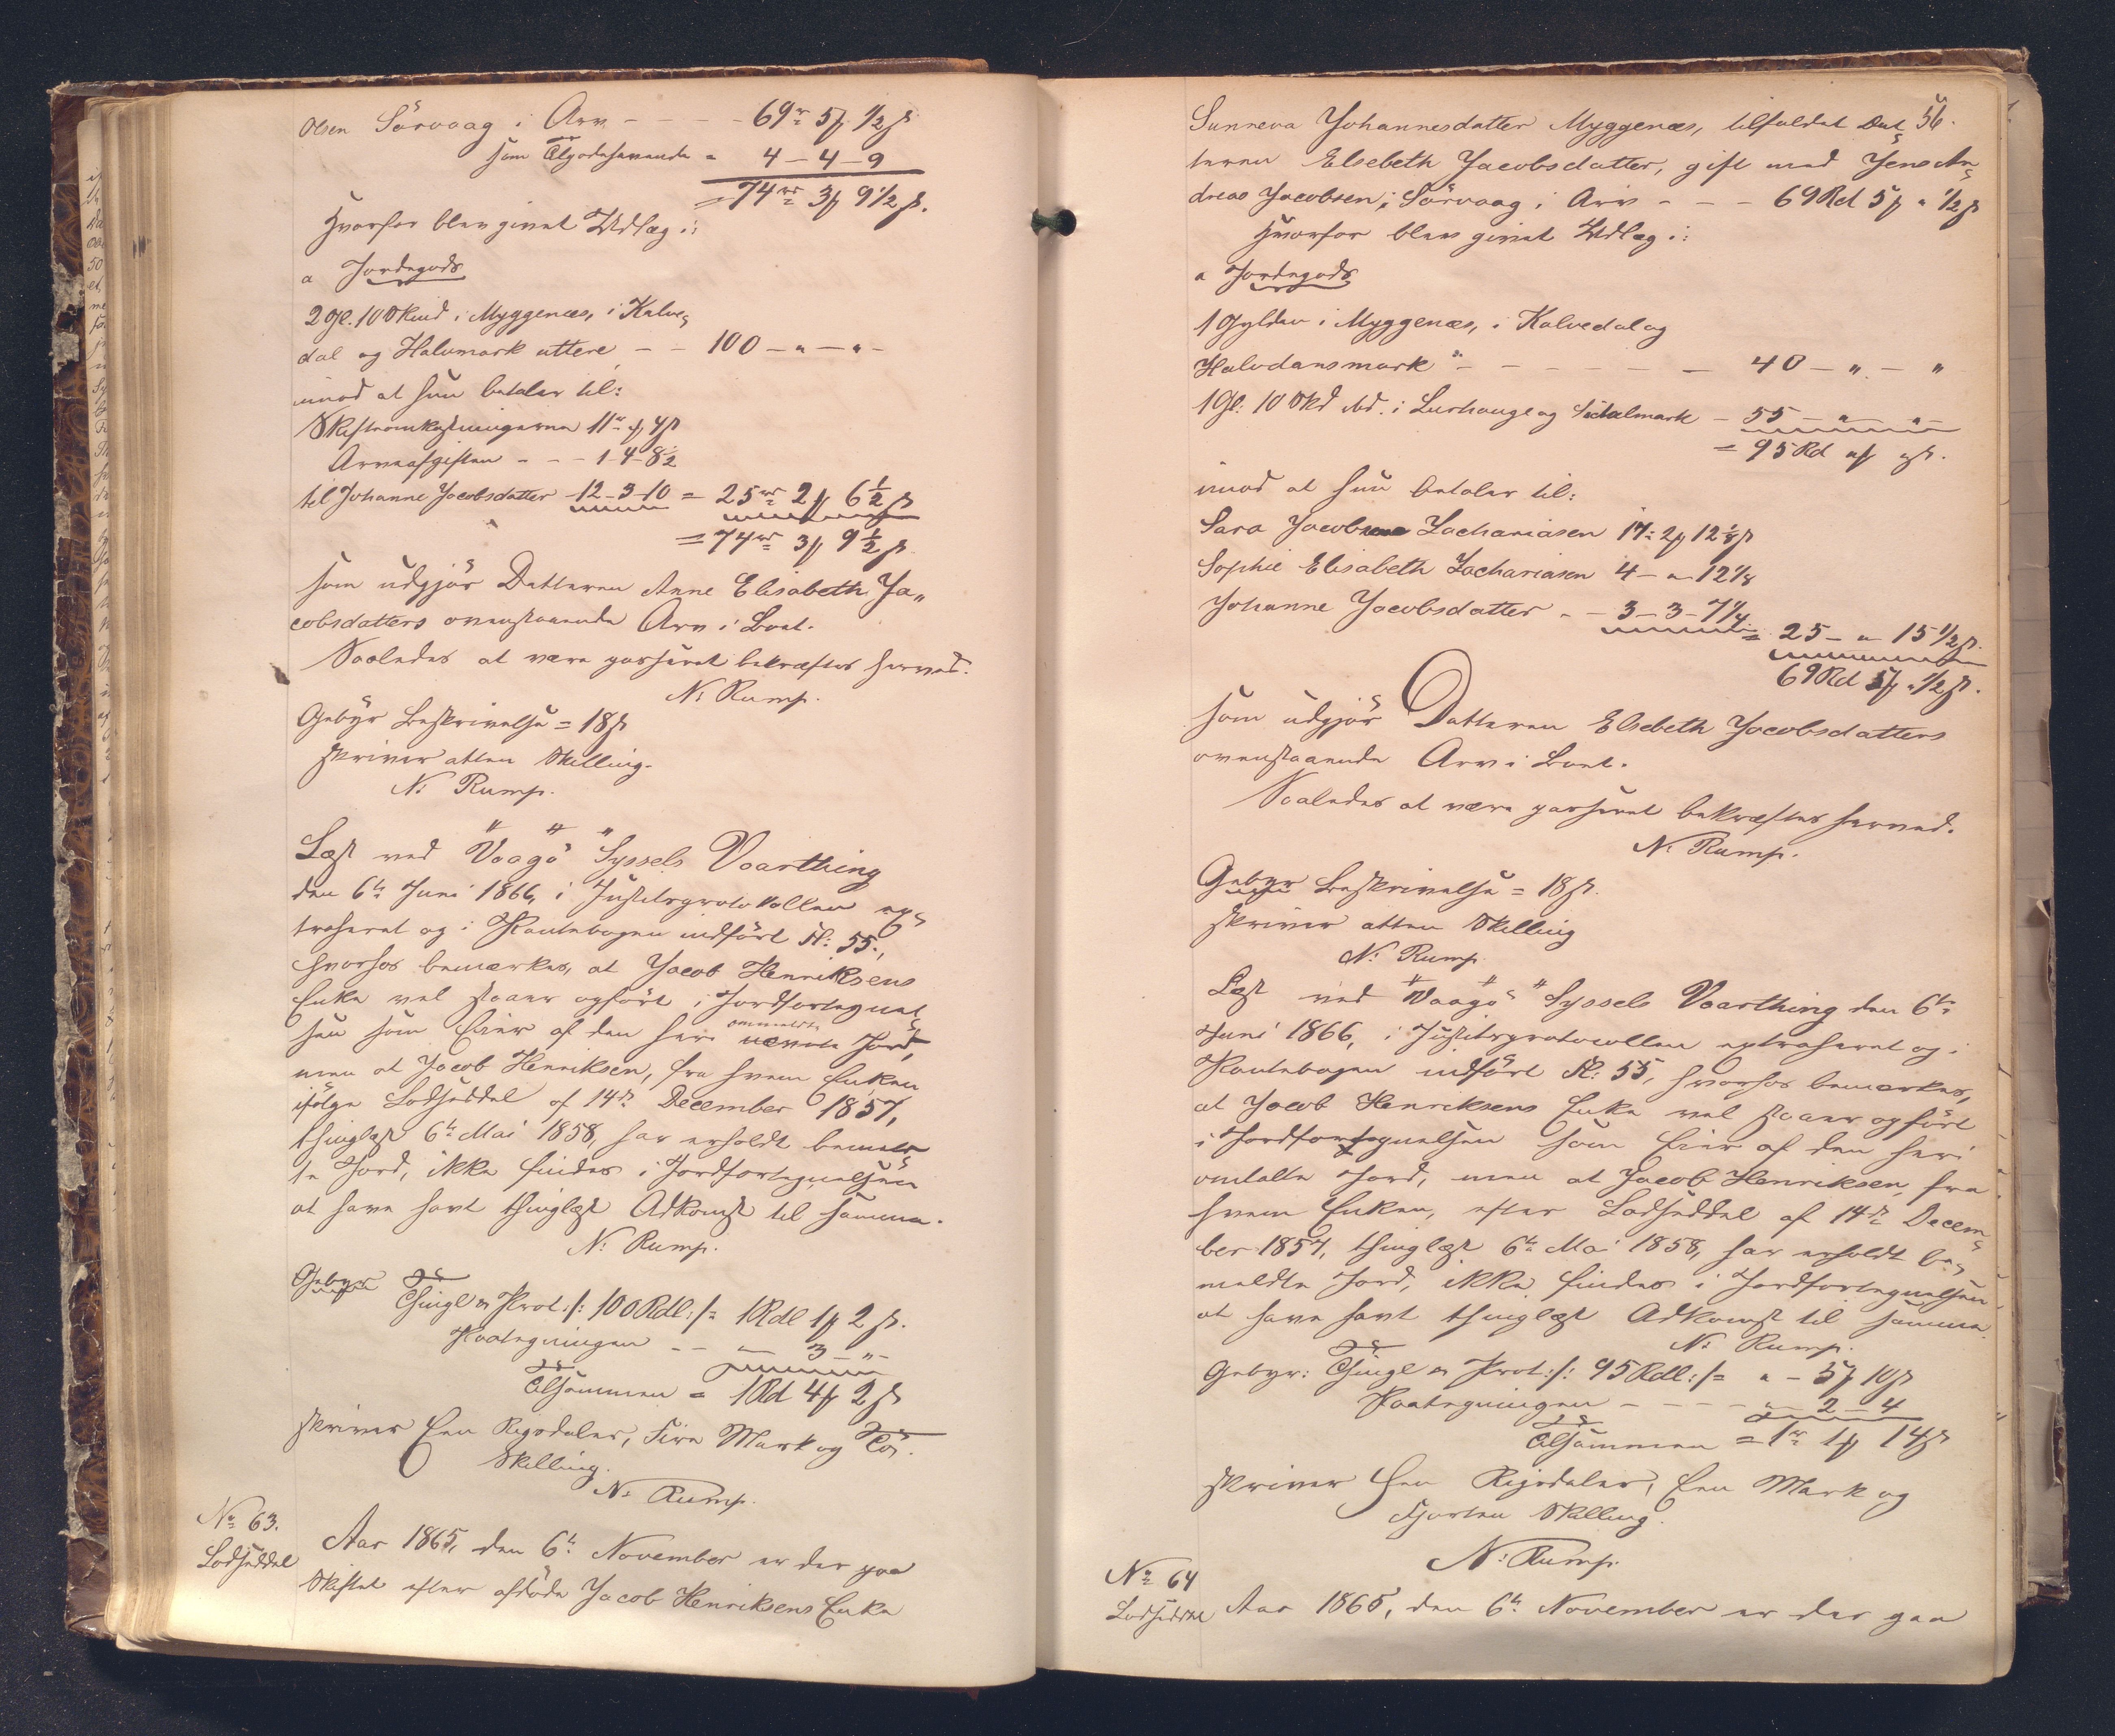 Olsen Sörvaag i Arv - - - - 69rd 5ꝑ ½ s
som Tilgodehavende = 4-4-9
= 74rd 3ꝑ 9½ s.
Hvorfor blev givet Udlæg i:
a Jordegods
2 Gl. 10 Skind i Myggenæs, i Kalve-
dal og Halvmark uttere - - 100 - " - " -
imod at hun betaler til:
Skifteomkostningerne 11rd " ꝑ 4 s
Arveafgiften - - - 1-4-8½
til Johanne Jacobsdatter 12-3-10 = 25rd 2ꝑ 6½ s
= 74rd 3ꝑ 9½ s.
som udgjör Datteren Anne Elisabeth Ja-
cobsdatters ovenstaaende Arv i Boet.
Saaledes at være passeret bekræftes herved.
N: Rump.
Gebyr Beskrivelse = 18 s
skriver atten Skilling.
N: Rump.
Læst ved Vaagö Syssels Vaarthing
den 6te Juni 1866, i Justitsprotokollen ex-
traheret og i Pantebogen indfört Fl: 55.,
hvorhos bemærkes, at Jacob Henriksens
Enke vel staaer opfört i Jordfortegnel-
sen som Eier af den heri ommeldte nævnte Jord,
men at Jacob Henriksen, fra hvem Enken
ifölge Lodseddel af 14de December 1857,
thinglæst 6te Mai 1858, har erholdt bemeld-
te Jord, ikke findes i Jordfortegnelsen
at have havt thinglæst Adkomst til samme.
N: Rump.
Gebyr Thingl & Prot :/: 100 Rdl :/= 1 Rdl 1ꝑ 2 s.
Paategningen - - " 3 - " -
Tilsammen = 1 Rd 4ꝑ 2 s
skriver Een Rigsdaler, Fire Mark og To
Skilling.
N: Rump.
No 63.
Lodseddel
Aar 1865, den 6te November er der paa
Skiftet efter afdöde Jacob Henriksens Enke
56.
Sunneva Johannesdatter Myggenæs, tilfaldet Dat-
teren Elsebeth Jacobsdatter, gift med Jens An-
dreas Jacobsen i Sörvaag i Arv - - - 69 Rd 5ꝑ " ½ s
Hvorfor blev givet Udlæg i:
a Jordegods
1 Gylden i Myggenæs, i Kalvedal og
Halvdansmark " - - - - - - 40 - " - "
1 Gl: 10 Skd ibd. i Lurhauge og Sidtalmark - 55 - " - " -
= 95 Rd " ꝑ " s.
imod at hun betaler til:
Sara Jacobine Zachariasen 17: 2ꝑ 12⅛ s
Sophie Elisabeth Zachariasen 4 - " - 12⅛
Johanne Jacobsdatter - - 3-3-7¼ = 25 - " - 15½ s.
69 Rd 5ꝑ " ½ s.
som udgjör Datteren Elsebeth Jacobsdatters
ovenstaaende Arv i Boet.
Saaledes at være passeret bekræftes herved.
N: Rump.
Gebyr Beskrivelse = 18 s.
skriver atten Skilling
N: Rump.
Læst ved Vaagö Syssels Vaarthing den 6te
Juni 1866, i Justitsprotocollen extraheret og i
Pantebogen indfört Fl: 55, hvorhos bemærkes,
at Jacob Henriksens Enke vel staaer opfört
i Jordfortegnelsen som Eier af den heri
omtalte Jord, men at Jacob Henriksen, fra
hvem Enken, efter Lodseddel af 14de Decem-
ber 1857, thinglæst 6te Mai 1858, har erholdt be-
meldte Jord, ikke findes i Jordfortegnelsen
at have havt thinglæst Adkomst til samme.
N: Rump.
Gebyr: Thingl & Prot :/: 95 Rdl :/= " - 5ꝑ 10 s
Paategningen - - - - " - 2 - 4
Tilsammen = 1rd 1ꝑ 14 s
skriver Een Rigsdaler, Een Mark og
Fjorten Skilling.
N: Rump.
No 64
Lodseddel
Aar 1865, den 6te November er der paa